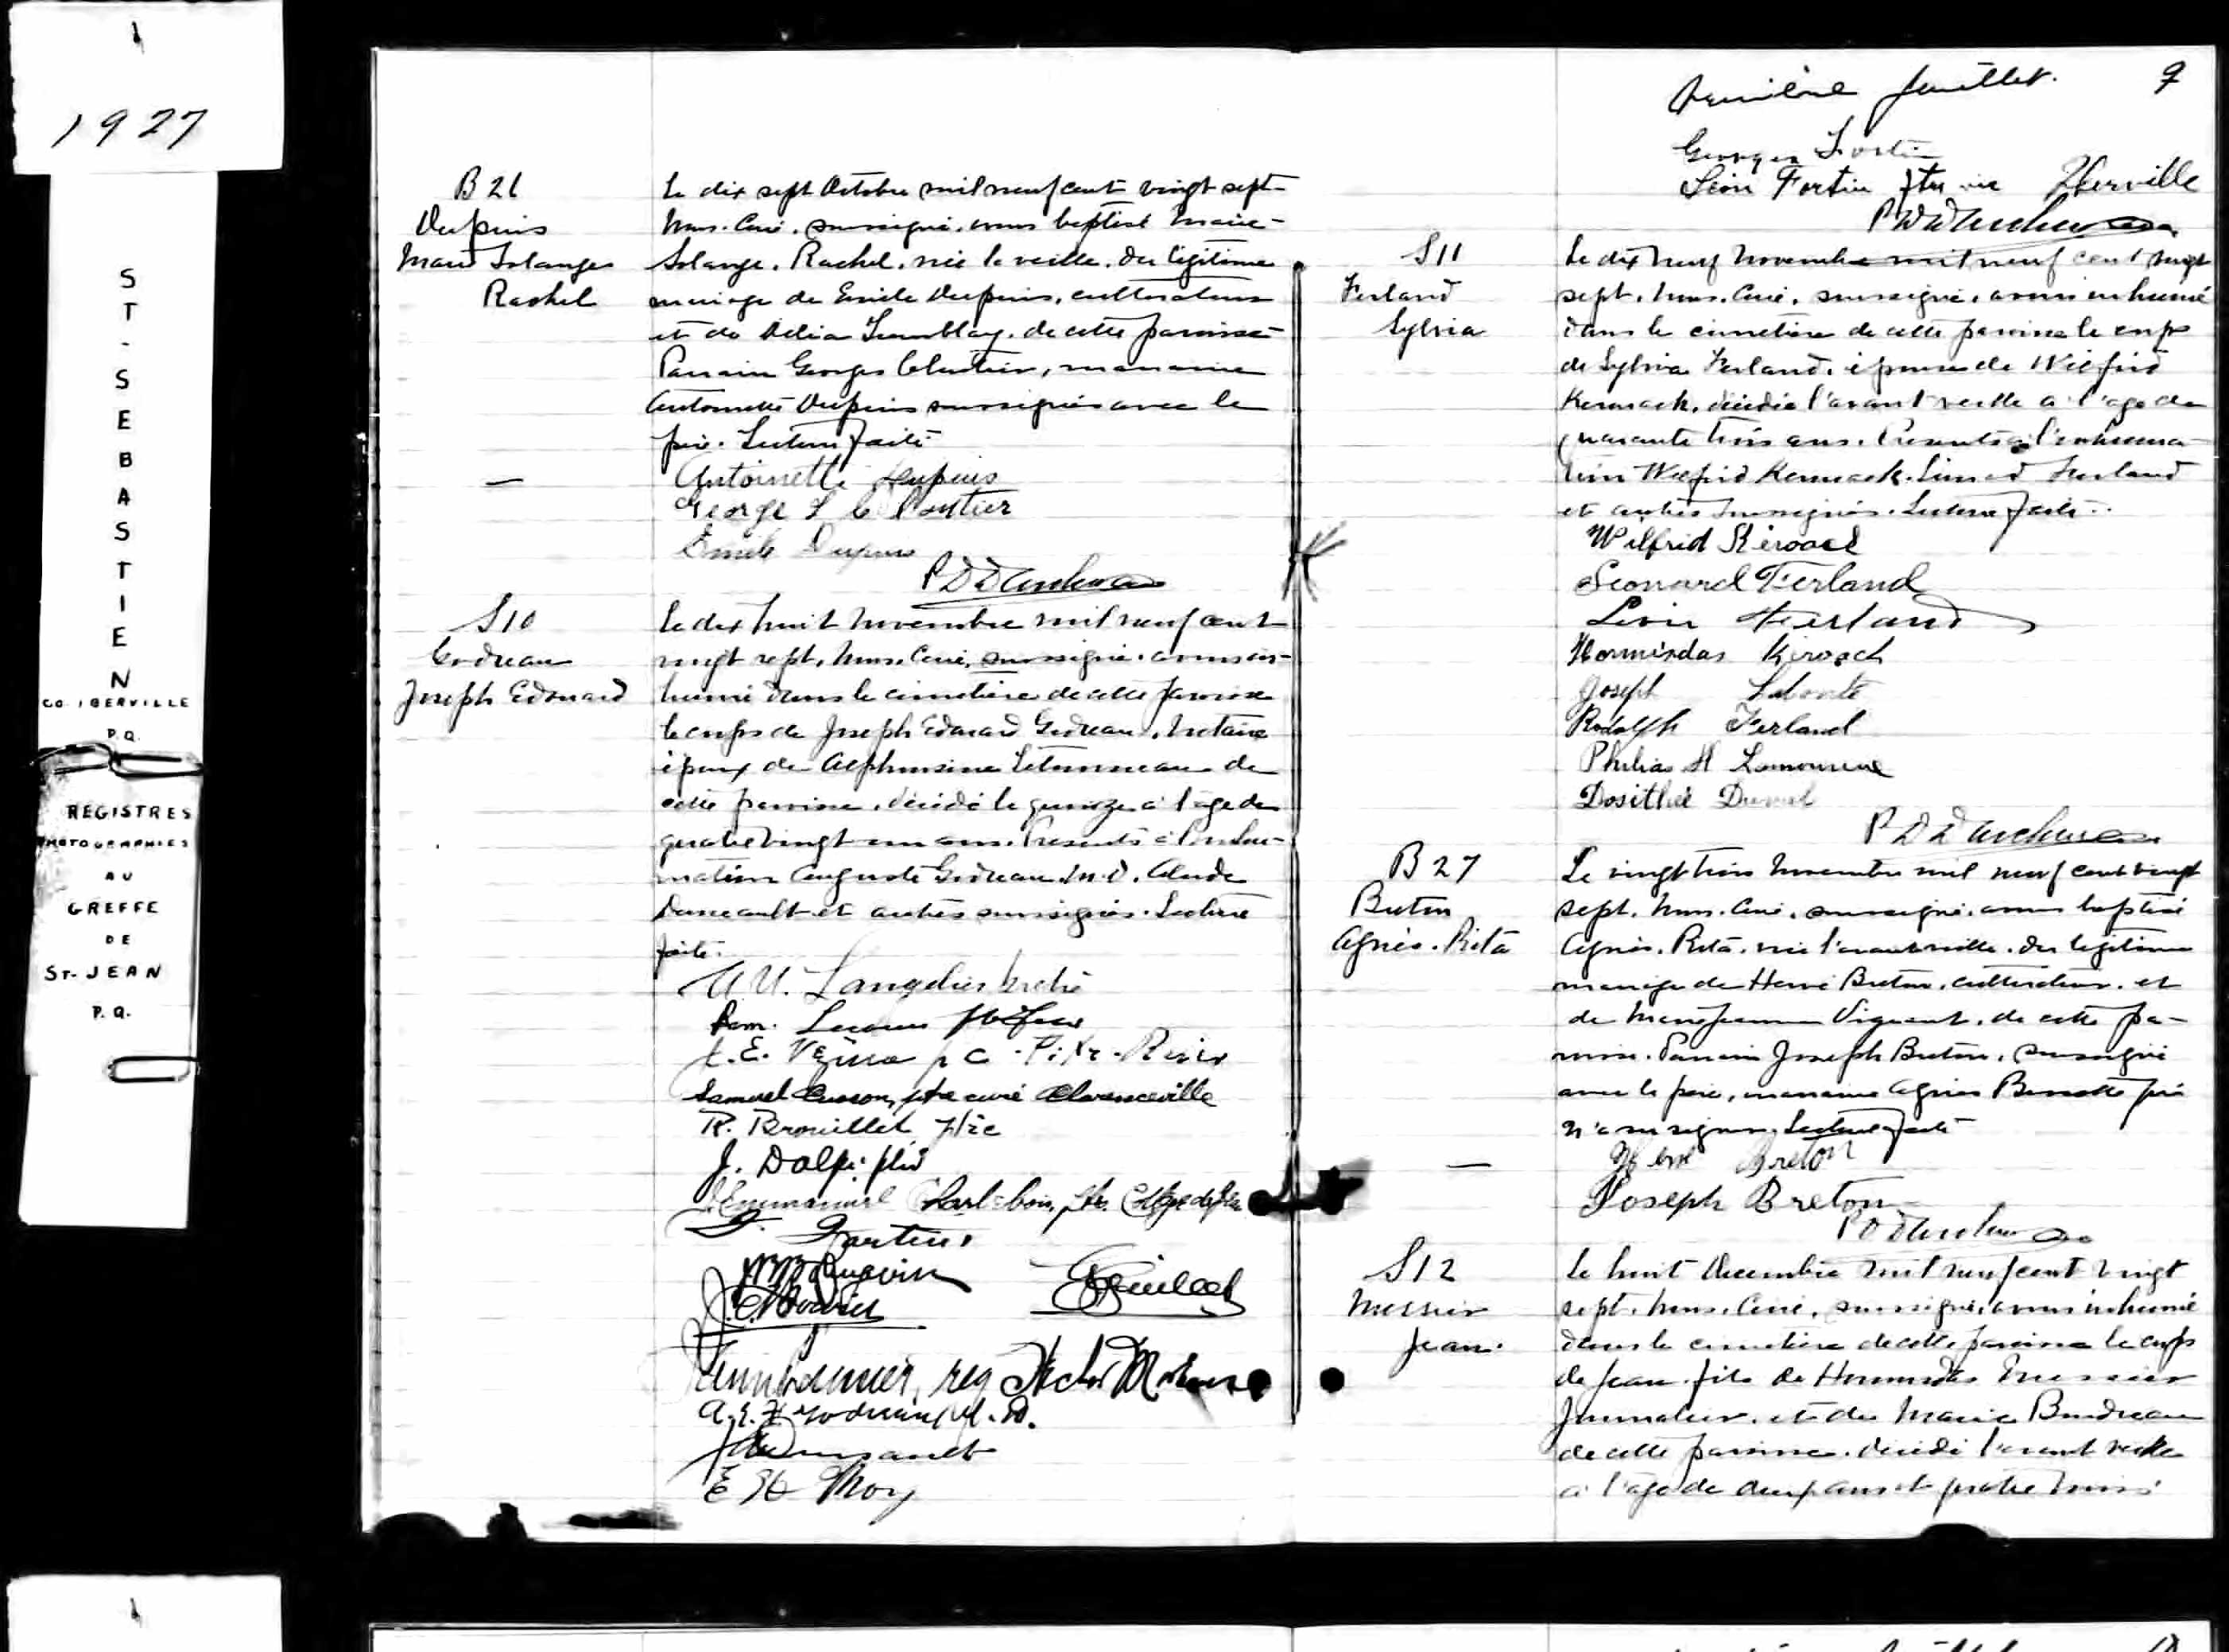 1927
ST-SEBASTIEN
CO. IBERVILLE
P.Q.
REGISTRES
PHOTOGRAPHIES
AU
GREFFE
DE
ST-JEAN
P.Q.
B 26
Dupuis
Marie Solange
Rachel
Le dix sept Octobre mil neuf cent vingt sept
Nous. Curé. soussigné. avons baptisé Marie-
Solange. Rachel. née la veille. du légitime
mariage de Emile Dupuis. cultivateur
et de Délia Tremblay. de cette paroisse
Parrain Georges Cloutier, marraine
Antoinette Dupuis soussignés avec le
père. Lecture faite
Antoinette Dupuis
George L Cloutier
Emile Dupuis
S 10
Godreau
Joseph Edouard
Le dix huit novembre mil neuf cent
vingt sept. Nous. Curé, soussigné. avons in-
humé dans le cimetière de cette paroisse
le corps de Joseph Edouard Godreau. Notaire
époux de Alphonsine Letourneau de
cette paroisse. décédé le quinze à l'age de
quatre vingt un ans. Présents à l'inhu-
mation Auguste Godreau. M.D.
et autres soussignés. Lecture
faite.
Samuel Cusson, ptre curé Clarenceville
R. Brouillet ptre
J. Dalpé ptre
Emmanuel Charlebois, ptre.
E H Moy
Dernière feuillet. 9
Georges Fortin
Léon Fortin ptre vic Iberville
S 11
Ferland
Sylvia
Le dix neuf Novembre mil neuf cent vingt
sept. Nous. Curé. soussigné. avons inhumé
dans le cimetière de cette paroisse le corps
de Sylvia Ferland. épouse de Wilfrid
Kerouack. décédée l'avant veille a l'age de
quarante trois ans. Présents à l'inhuma-
tion Wilfrid Kerouack. Ferland
et autres soussignés. Lecture faite.
Wilfrid Kéroack
Leonard Ferland
Ferland
Hormisdas Kéroack
Joseph Labonté
Rodolph Ferland
Philias H Lamoureux
Dosithée Duval
B 27
Breton
Agnès. Rita
Le vingt trois Novembre mil neuf cent vingt
sept. Nous. Curé. soussigné. avons baptisé
Agnès. Rita. née l'avant veille. du légitime
mariage de Hervé Breton. cultivateur. et
de Marie Jeanne. de cette pa-
roisse. Parrain Joseph Breton. soussigné
avec le père, marraine Agnès qui
n'a su signer. Lecture faite
Hervé Breton
Joseph Breton
S 12
Messier
Jean.
Le huit Decembre mil neuf cent vingt
sept. Nous. Curé, soussigné. avons inhumé
dans le cimetière de cette paroisse le corps
de Jean. fils de Hormisdas Messier
Journalier. et de Marie Boudreau
de cette paroisse. décédé l'avant veille
a l'age de deux ans et quatre mois